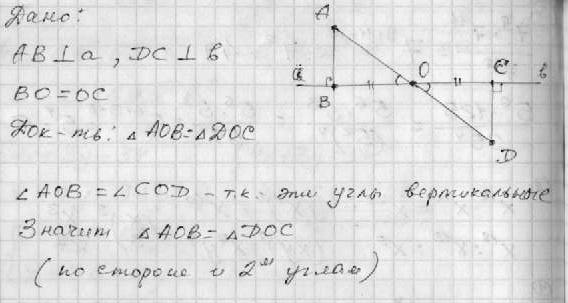 Дано:
AB ⊥ a, DC ⊥ b
BO = OC
Док-ть: △AOB = △DOC
∠AOB = ∠COD - т.к. эти углы вертикальные
Значит △AOB = △DOC
(по стороне и 2ᵐ углам)
A
a
B
O
C
b
D